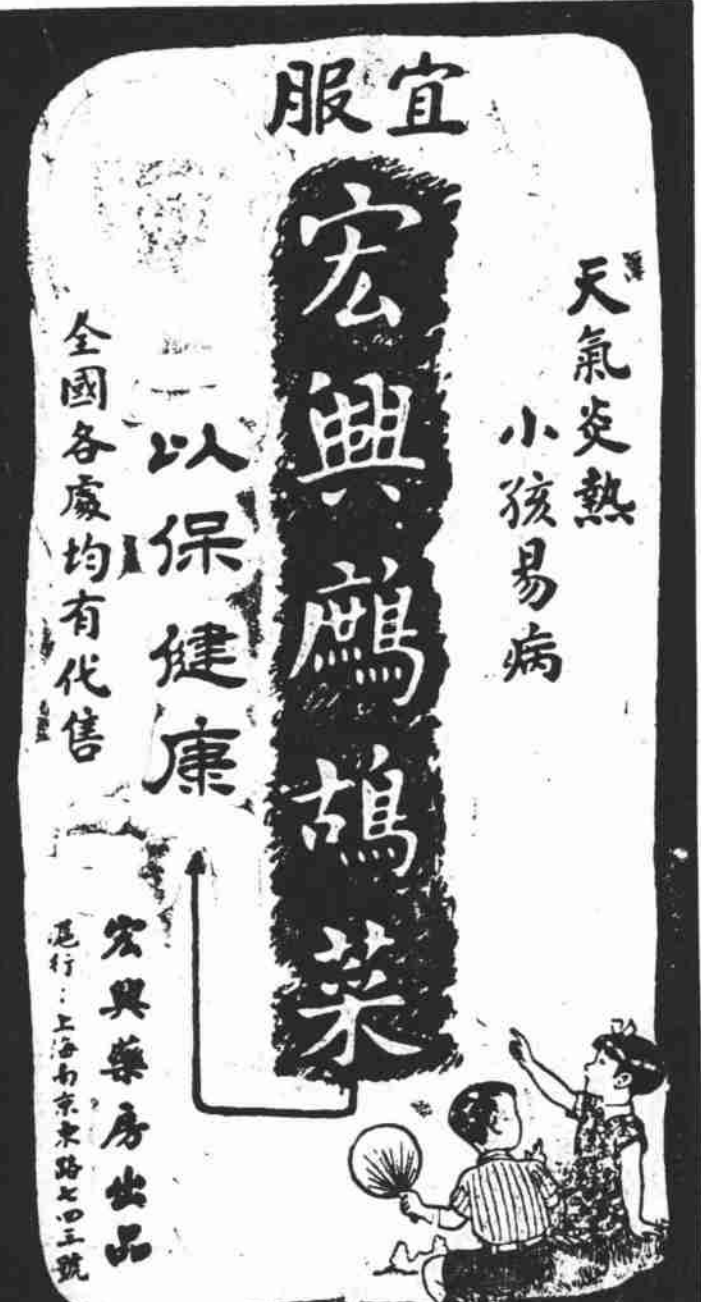 天氣炎熱
小孩易病
宜服
宏興鷓鴣菜
以保健康
全國各處均有代售
宏興藥房出品
滬行：上海南京東路七四三號